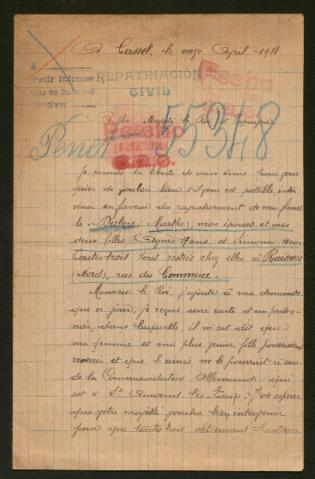 A Cassel, le onze Avril - 1918
REPATRIACIÓN
CIVIL
Hecho
A Sa Majesté le Roi
55348
Hecho
Je prends la liberté de vous écrire pour vous
prier de vouloir bien, s'il vous est possible, inter
venir en faveur du rapatriement de ma femme
Marthe, mon épouse et mes
deux filles Agnès 17 ans, et
toutes trois sont restées chez elles à Raismes
(Nord), rue du Commerce.
Monsieur le Roi, j'ajoute à ma demande
que ce jour, je reçois une carte d'un prison-
nier, dans laquelle, il m'est dit que
ma femme et ma plus jeune fille pourraient
et que l'ainée ne le pourrait à cause
de la Commandature Allemande qui
est à St Amand les Eaux. J'ose espérer
que votre majesté voudra bien intervenir
pour que toutes trois obtiennent